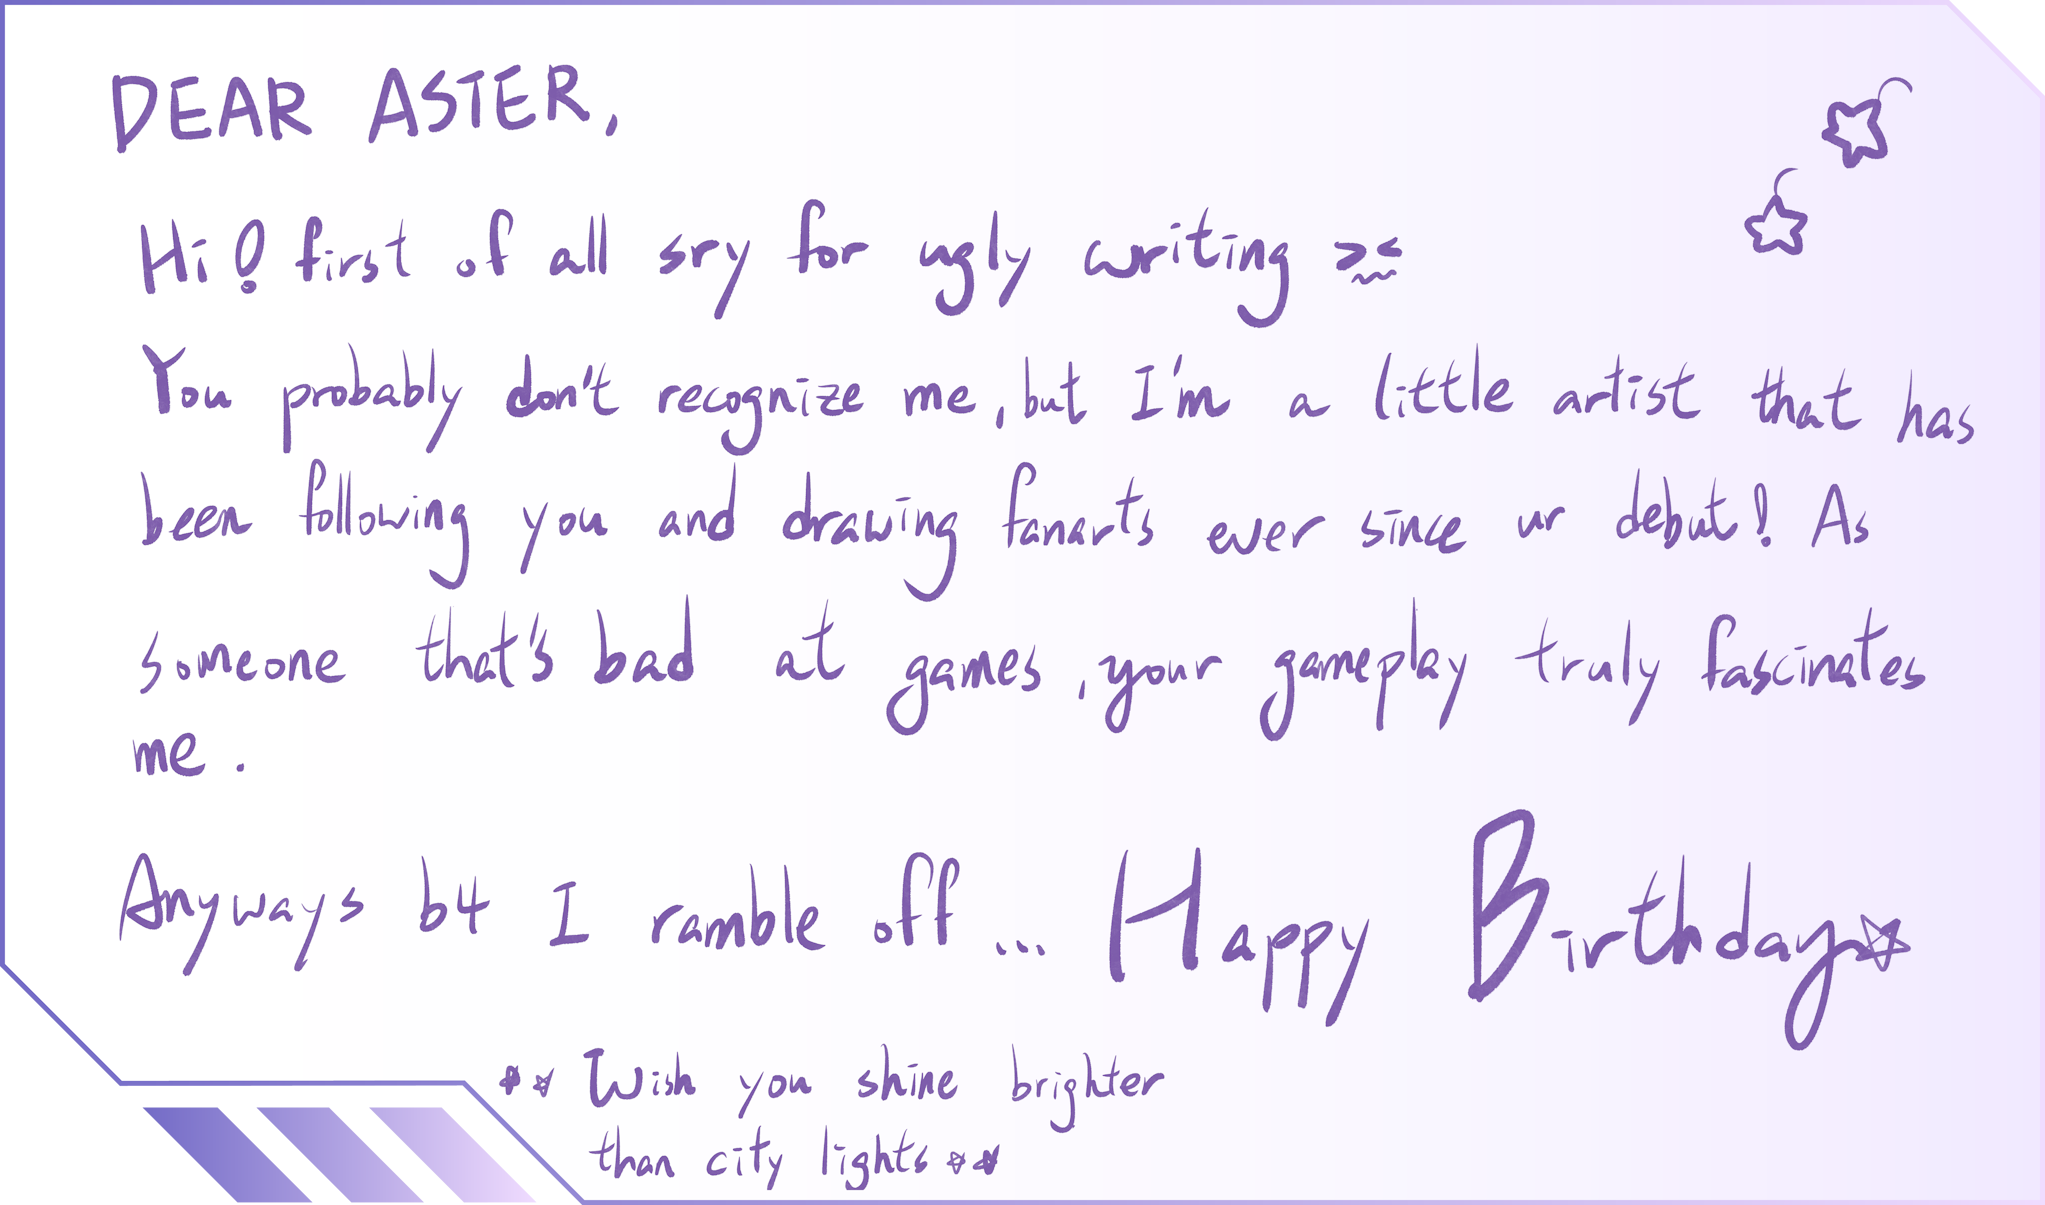 DEAR ASTER,
Hi! first of all sry for ugly writing >~<
You probably don't recognize me, but I'm a little artist that has
been following you and drawing fanarts ever since ur debut! As
someone that's bad at games, your gameplay truly fascinates
me.
Anyways b4 I ramble off... Happy Birthday☆
☆☆ Wish you shine brighter
than city lights☆☆